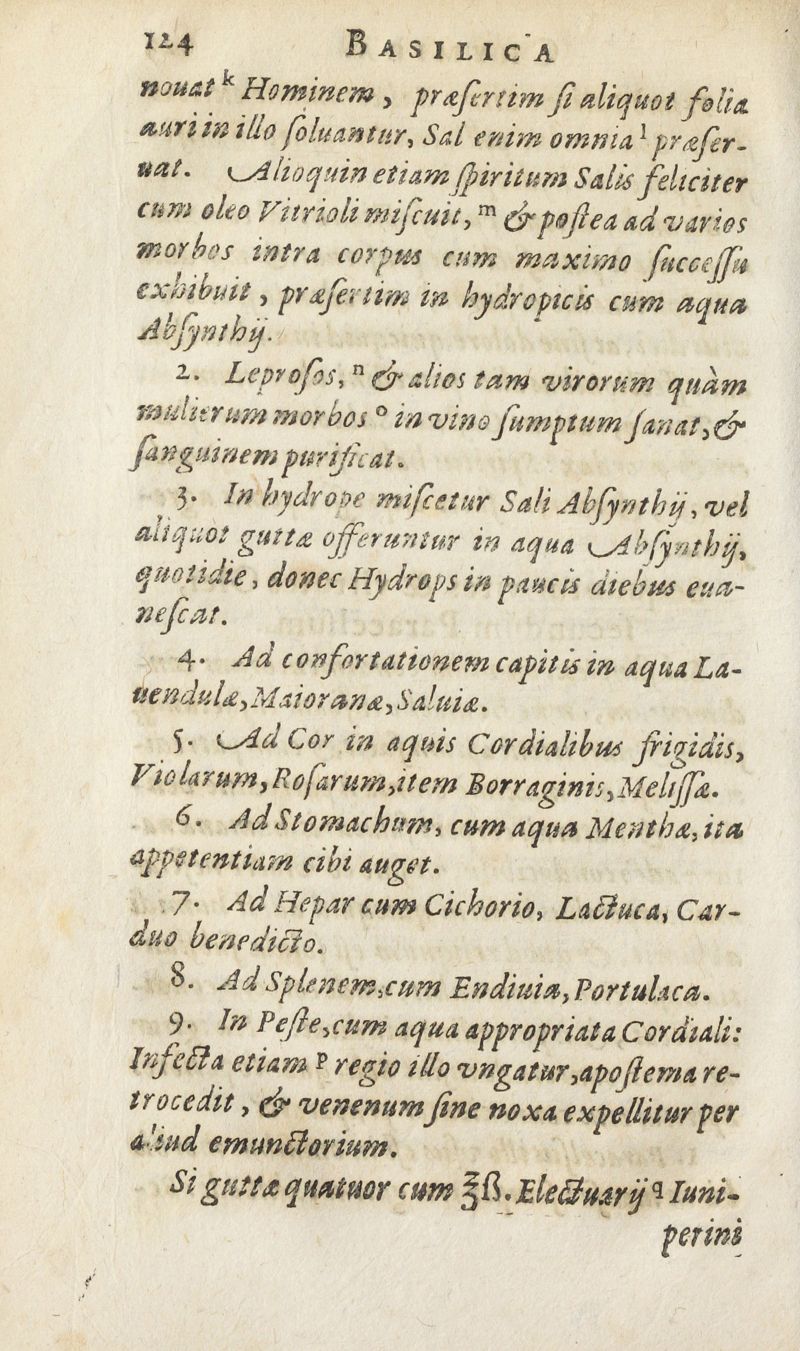 124 BASILICA
nouat ᵏ Hominem, præſertim ſi aliquot folia
auri in illo ſoluantur, Sal enim omnia ˡ præſer-
uat. Alioquin etiam ſpiritum Salis feliciter
cum oleo Vitrioli miſcuit, ᵐ & poſtea ad varios
morbos intra corpus cum maximo ſucceſſu
exhibuit, præſertim in hydropicis cum aqua
Abſynthij.
2. Leproſos, ⁿ & alios tam virorum quàm
mulierum morbos ᵒ in vino ſumptum ſanat, &
ſanguinem purificat.
3. In hydrope miſcetur Sali Abſynthij, vel
aliquot guttæ offeruntur in aqua Abſynthij,
quotidie, donec Hydrops in paucis diebus eua-
neſcat.
4. Ad confortationem capitis in aqua La-
uendulæ, Maioranæ, Saluiæ.
5. Ad Cor in aquis Cordialibus frigidis,
Violarum, Roſarum, item Borraginis, Meliſſæ.
6. Ad Stomachum, cum aqua Menthæ, ita
appetentiam cibi auget.
7. Ad Hepar cum Cichorio, Lactuca, Car-
duo benedicto.
8. Ad Splenem, cum Endiuia, Portulaca.
9. In Peſte, cum aqua appropriata Cordiali:
Infecta etiam ᵖ regio illo vngatur, apoſtema re-
trocedit, & venenum ſine noxa expellitur per
aliud emunctorium.
Si guttæ quatuor cum ℥ß. Electuarij q Iuni-
perini